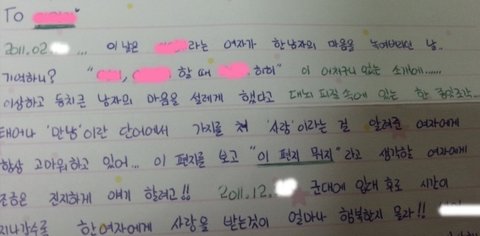 To
2011.02. ... 이날은 라는 여자가 한남자의 마음을 녹여버리신 날..
기억하니? " , 할때 , 히히" 이 어처구니 있는 소개에......
이상하고 둥치큰 남자의 마음을 설레게 했다고 대뇌 피질 속에 있는 한
태어나 '만남'이란 단어에서 가지를 쳐 '사랑'이라는 걸 알려준 여자에게
항상 고마워하고 있어... 이 편지를 보고 "이 편지 뭐지"라고 생각할 여자에게
조금은 진지하게 얘기 할려고!! 2011.12. 군대에 입대 후로 시간이
지나갈수록 한여자에게 사랑을 받는것이 얼마나 행복한지 몰라!!